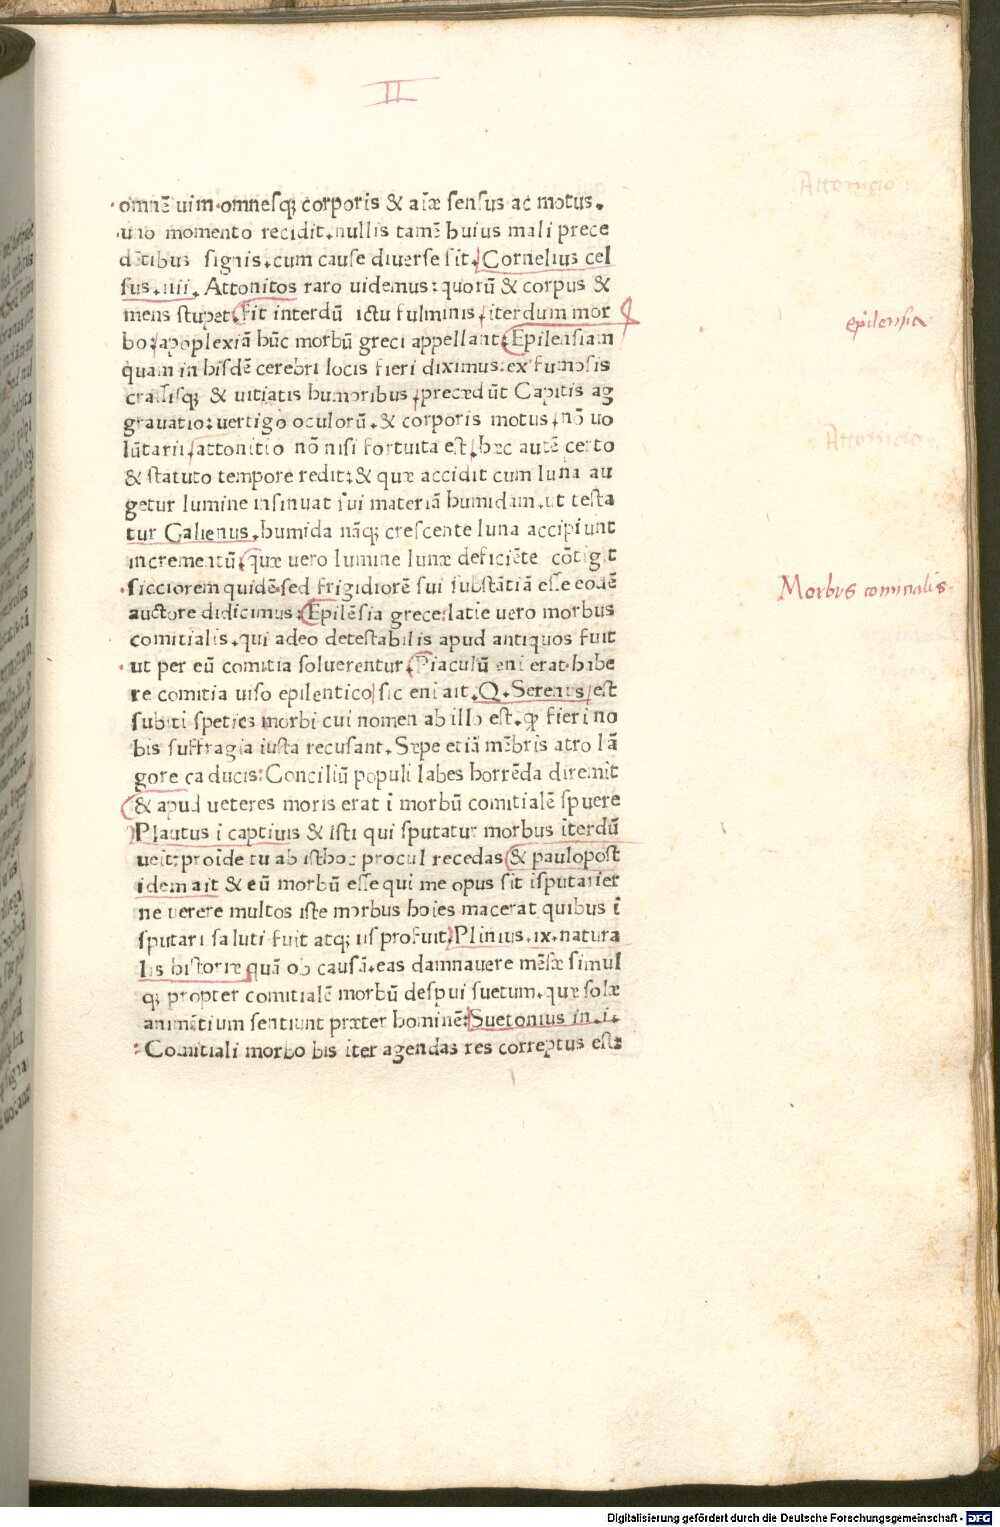 II
omnē uim omnesq; corporis & aīæ sensus ac motus.
uno momento recidit. nullis tamē huius mali prece
dētibus signis. cum cause diuerse sit. Cornelius cel
sus. iiii. Attonitos raro uidemus: quorū & corpus &
mens stupet. fit interdū ictu fulminis. iterdum mor
bo: apoplexiā hūc morbū greci appellant: Epilensiam
quam in hisdē cerebri locis fieri diximus: ex fumosis
crassisq; & uitiatis humoribus. præcedūt Capitis ag
grauatio: uertigo oculorū. & corporis motus. nō uo
lūtarii. attonitio nō nisi fortuita est. hæc autē certo
& statuto tempore redit: & quæ accidit cum luna au
getur lumine insinuat sui materiā humidam. ut testa
tur Galienus. humida nāq; crescente luna accipiunt
incrementū. quæ uero lumine lunæ deficiēte cōtigit
sicciorem quidē sed frigidiorē sui substātiā esse eodē
auctore didicimus: Epilēsia grece: latie uero morbus
comitialis. qui adeo detestabilis apud antiquos fuit
ut per eū comitia soluerentur. Piaculū eni erat habe
re comitia uiso epilentico sic eni ait. Q. Serenus est
subiti species morbi cui nomen ab illo est. ꝙ fieri no
bis suffragia iusta recusant. Sæpe etiā mēbris atro lā
gore caducis: Conciliū populi labes horrēda diremit
& apud ueteres moris erat ī morbū comitialē spuere
Plautus ī captiuis & isti qui sputatur morbus iterdū
ueit: proīde tu ab isthoc procul recedas & paulopost
idem ait & eū morbū esse qui me opus sit isputarier
ne uerere multos iste morbus hoies macerat quibus ī
sputari saluti fuit atq; iis profuit. Plinius. ix. natura
lis historiæ quā ob causā. eas damnauere mēsæ simul
q; propter comitialē morbū despui suetum. quæ solæ
animētium sentiunt præter hominē: Suetonius in. i.
Comitiali morbo bis iter agendas res correptus est:
Attonicio
epilensia
Attonicio
Morbus comitialis
Digitalisierung gefördert durch die Deutsche Forschungsgemeinschaft - DFG